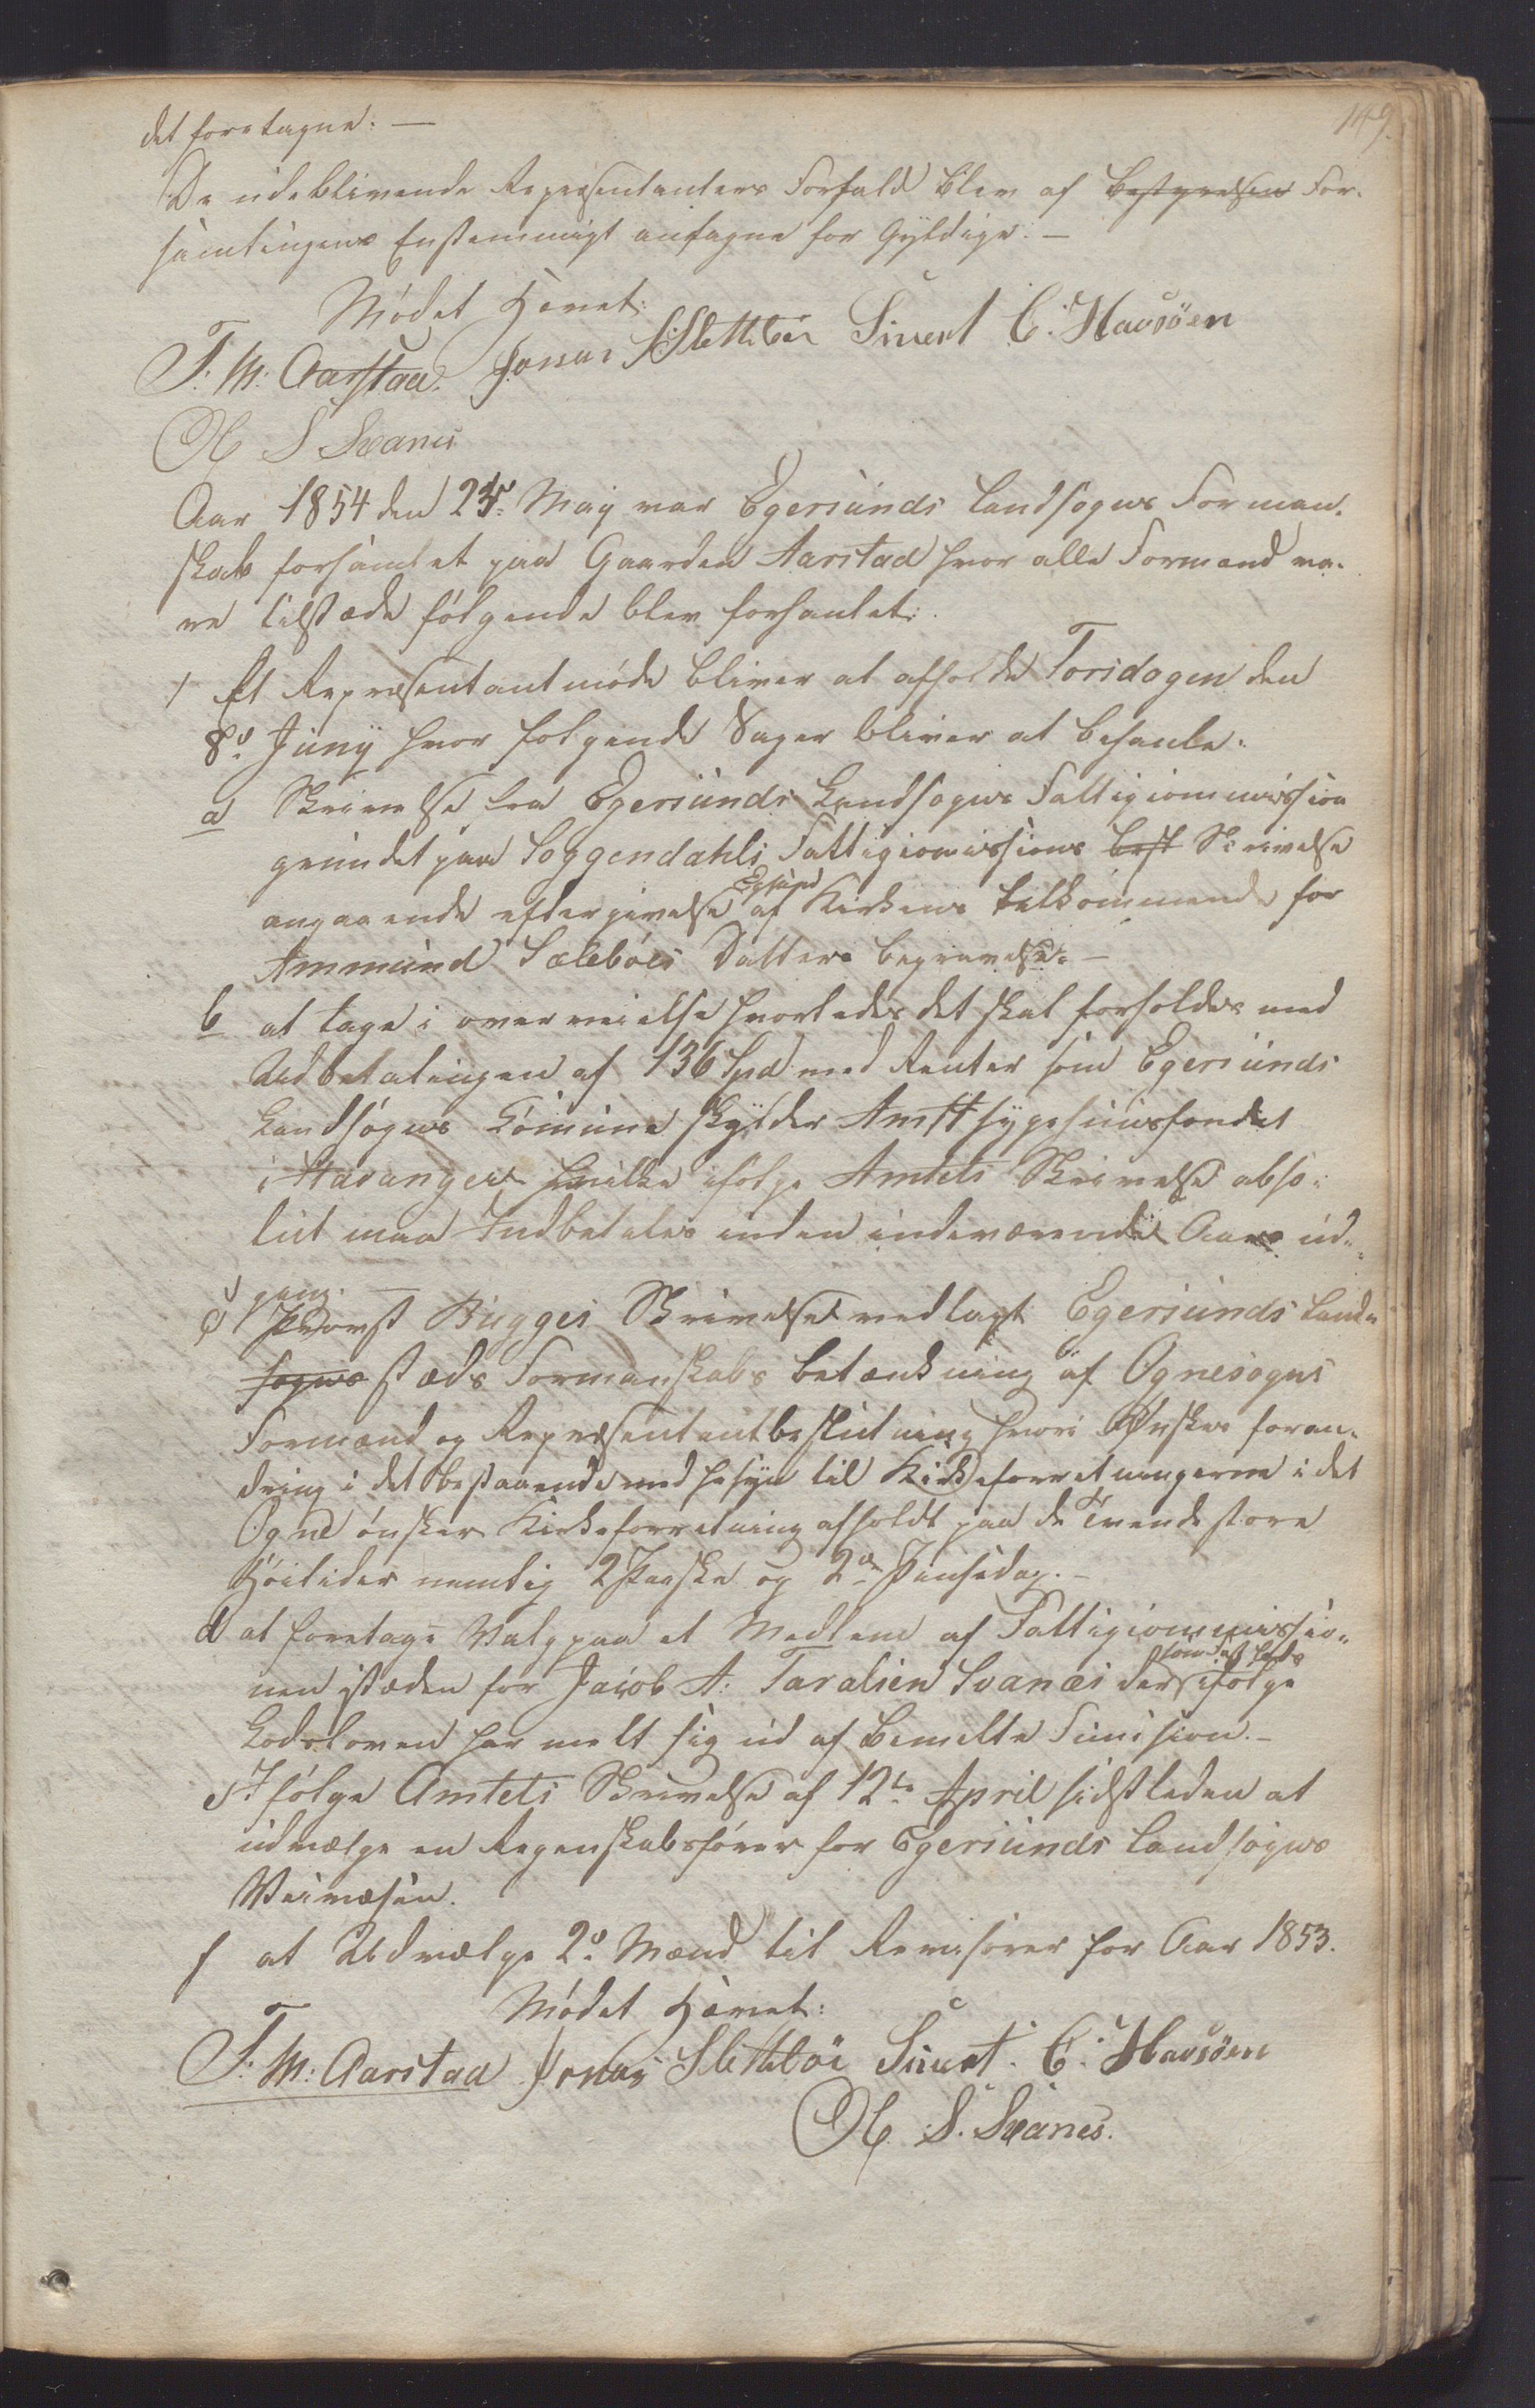 149.
det foretagne. —
De udeblivende Repræsentanters Forfald blev af Bestyrelsen For-
samlingens Enstemmigt antagne for Gyldige. —
Mødet Hævet:
T. M. Aarstad. Jonas Slettebøe Sivert C. Havsöen
O S Svanes
Aar 1854 den 25. May var Egersunds Landsogns Forman-
skab forsamlet paa Gaarden Aarstad hvor alle Formænd va-
re tilstæde følgende blev forhanlet:
1 Et Repræsentantmøde bliver at afholde Torsdagen den
8de Juny hvor følgende Sager bliver at behanle:
a Skrivelse fra Egersunds Landsogns Fattigiommission
grundet paa Soggendahls Fattigiomissions best Skrivelse
angaaende eftergivelse af Egsund Kirkens tilkommende for
Ammund Sælebøes Datters begravelse. —
b at tage i overveielse hvorledes det skal forholdes med
Udbetalingen af 136 Spd med Renter som Egersunds
Landsogns Comune skylder Amtssygehuusfondet
i Stavanger hvilke ifølge Amtets Skrivelse abso-
lut maa Indbetales inden indeværende Aars ud-
gang. —
c Provst Bugges Skrivelse vedlagt Egersunds Land-
sogns stæds Formanskabs betænkning af Ognesogns
Formænd og Repræsentantbeslutning hvori Ønskes foran-
dring i det bestaaende med hesyn til Kirkeforretningerne i det
Ogne ønsker Kirkeforretning afholdt paa de Tvende store
Høitider nemlig 2 Paaske og 2den Pinsedag. —
d at foretage Valg paa et Medlem af Fattigiommissio-
nen istæden for Jacob A. Taralsen Svanæs der ifølge
Lodsloven har melt sig ud af bemelte Cumision. —
e Ifølge Amtets Skrivelse af 12te April sidstleden at
udvælge en Regenskabsfører for Egersunds Landsogns
Veivæsen.
f at Udvælge 2de Mænd til Revisorer for Aar 1853.
Mødet Hævet:
T. M. Aarstad Jonas Slettebøe Sivert C. Havsöen
O S. Svanes.